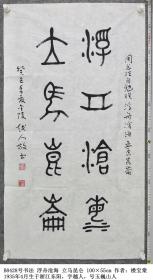 浮舟滄海
立馬崑崙
浮舟滄海 立馬崑崙
B0428号书法 浮舟沧海 立马昆仑 100×55cm 作者：楼宝
1935年4月生于浙江东阳，字越人，号玉巍山人